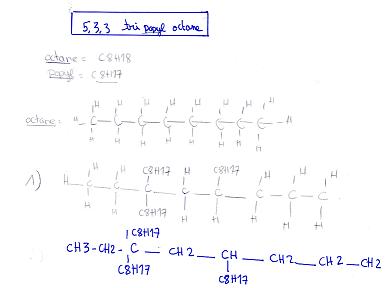 5,3,3 tri propyl octane
octane = C8H18
Propyl = C8H17
H H H H H H H H
octane: H - C - C - C - C - C - C - C - C - H
H H H H H H H H
H H C8H17 H C8H17 H H H
1) H - C - C - C - C - C - C - C - C
H H C8H17 H H H H H
C8H17
CH3 - CH2 - C - CH2 - CH - CH2 - CH2 - CH2
C8H17 C8H17